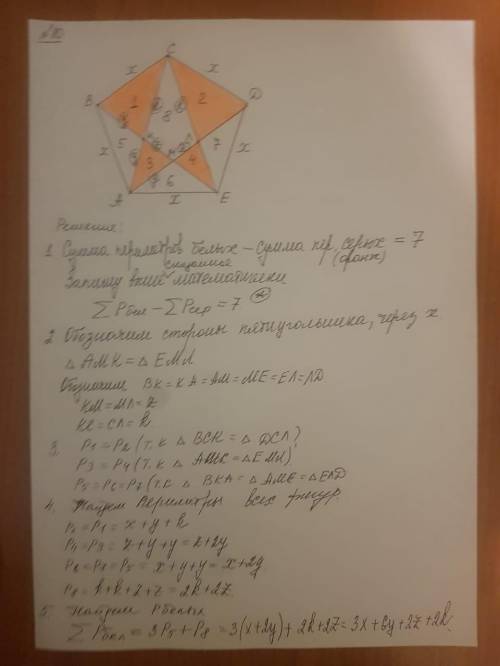 №10
C
x
x
B
1
2
D
8
x
5
7
x
3
4
6
A
x
E
Решение:
1. Сумма периметров белых – сумма пер. серых = 7
(оранж)
Запишу выше сказанное математически
∑ Pбел – ∑ Pсер = 7
2 Обозначим стороны пятиугольника, через x
△ AMK = △ EMЛ
Обозначим BK = KA = AM = ME = EЛ = ЛD
KM = MЛ = Z
KC = CЛ = k
3. P1 = P2 (т.к △ BCK = △ DCЛ)
P3 = P4 (т.к △ AMK = △ EMЛ)
P5 = P6 = P7 (т.к △ BKA = △ AME = △ EЛD
4. Найдем периметры всех фигур.
P2 = P1 = x + y + k
P4 = P3 = z + y + y = z + 2y
= P5 = x + y + y = x + 2y
P8 = k + k + z + z = 2k + 2z
5. Найдем Pбелых
= 3P5 + P8 = 3(x + 2y) + 2k + 2z = 3x + 6y + 2z + 2k.